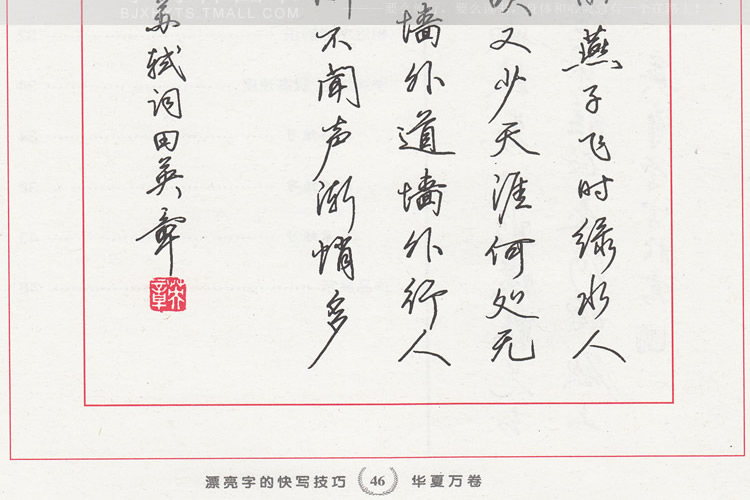 燕子飞时绿水人
又少天涯何处无
墙外道墙外行人
不闻声渐悄多
苏轼词田英章
英章
漂亮字的快写技巧 46 华夏万卷